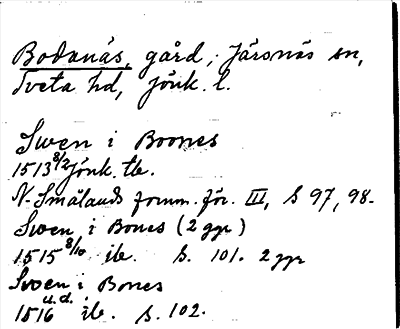 Bodanäs, gård, Järsnäs sn,
Tveta hd, Jönk. l.
Swen i Boones
1513 8/2 Jönk. tb.
N. Smålands fornm. för. III, s 97, 98.
Swen i Bones (2 ggr)
1515 8/10 ib. s. 101. 2 ggr
Swen i Bones
1516 u.d. ib. s. 102.